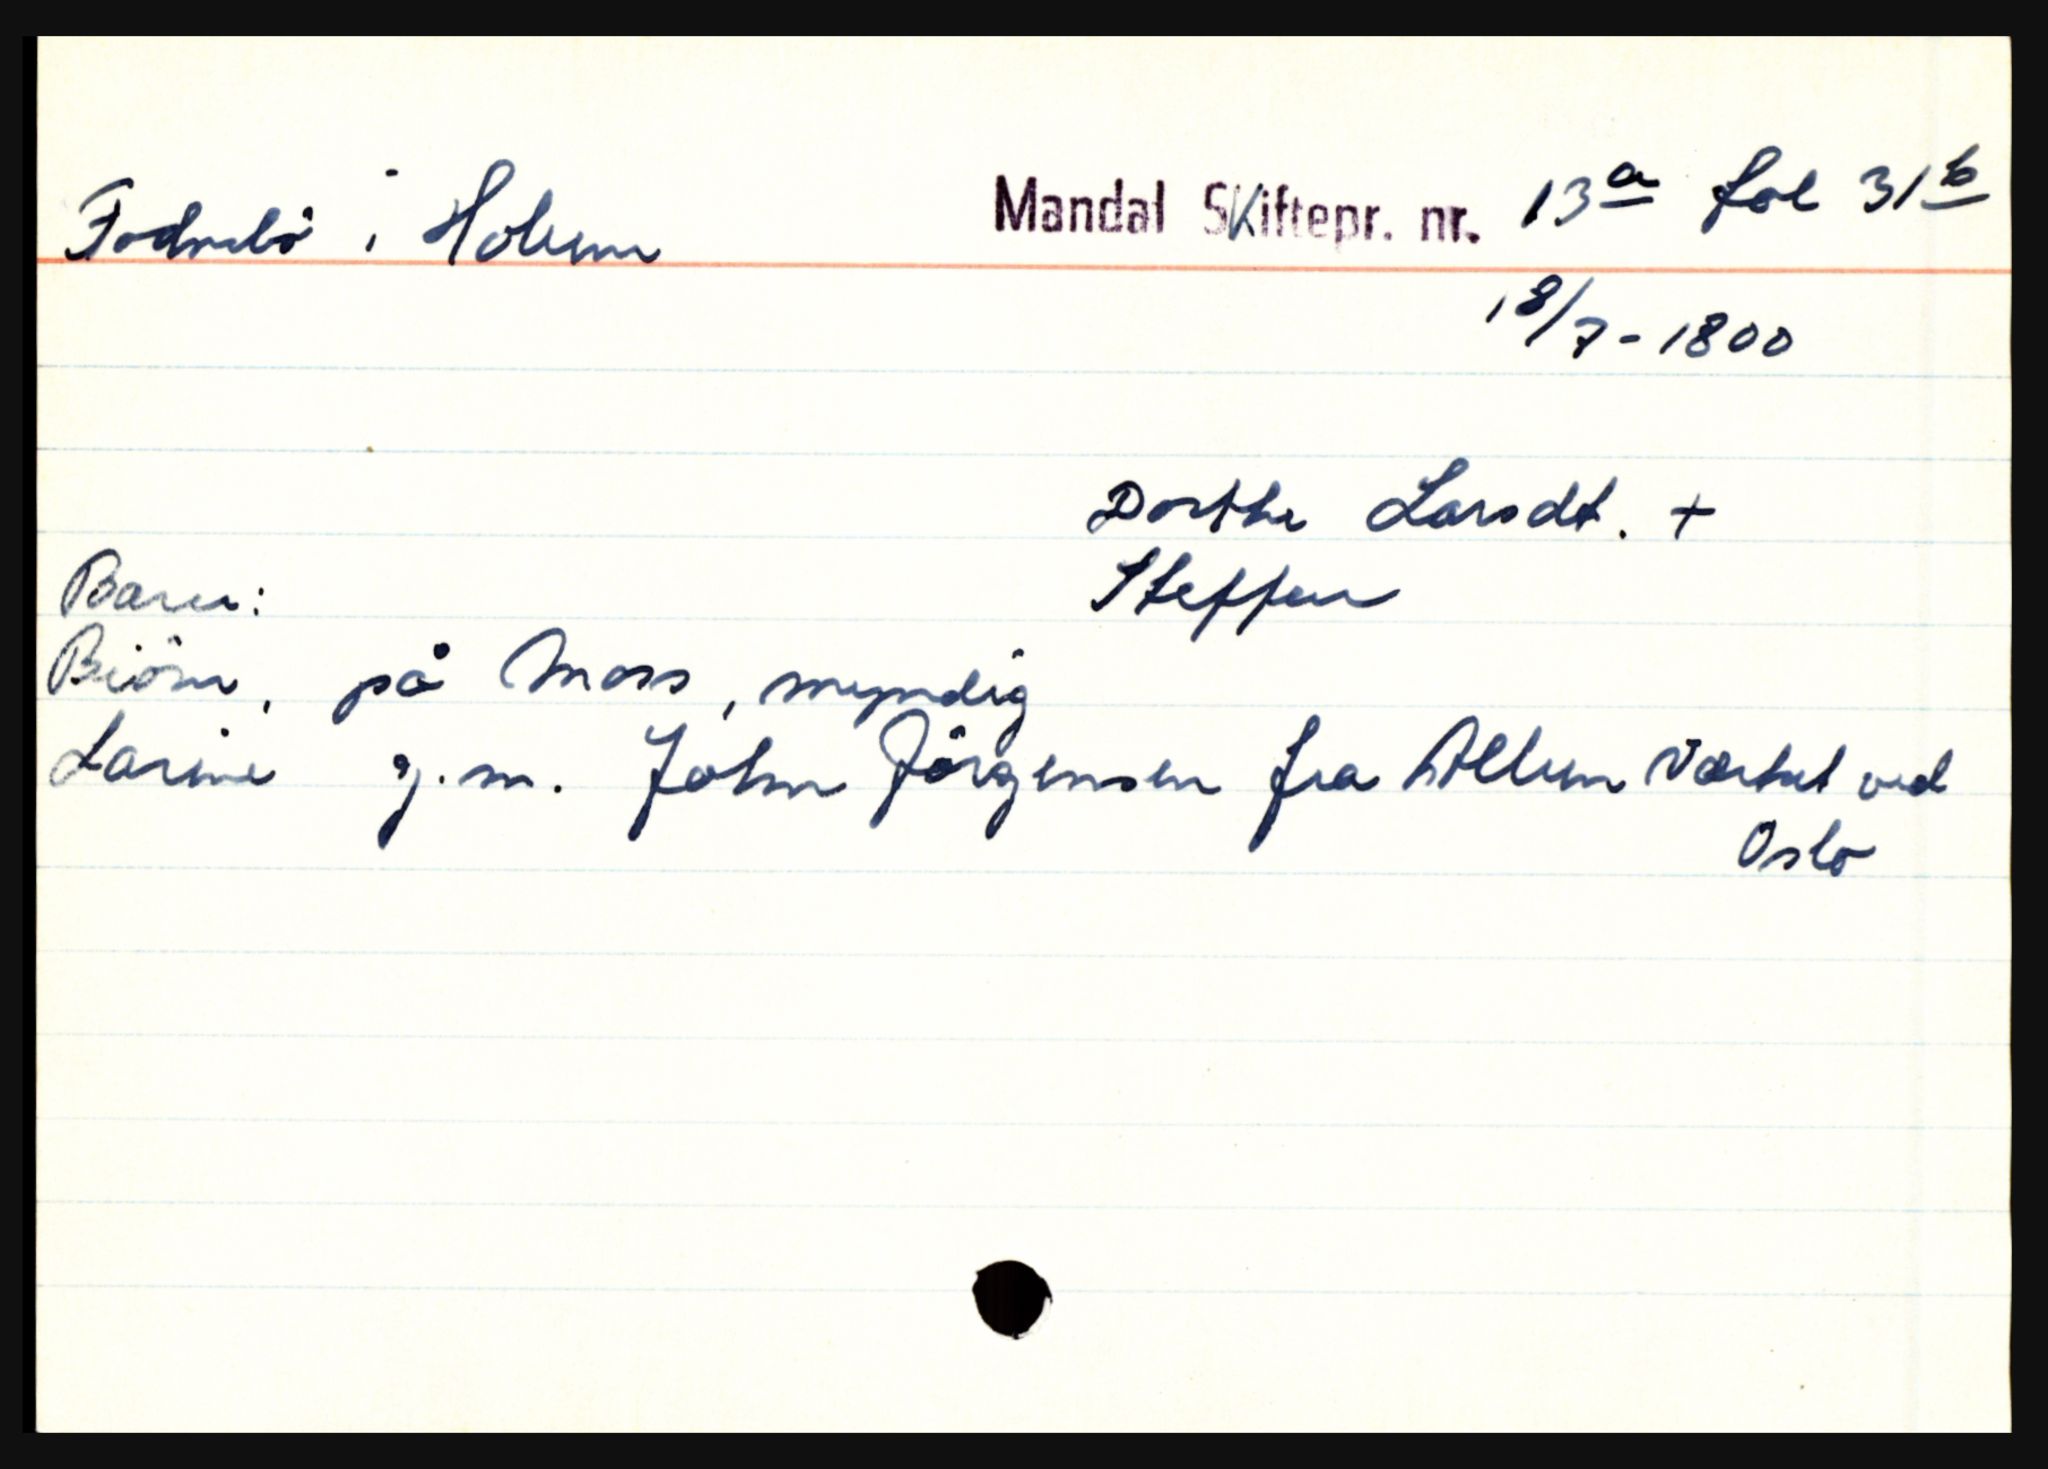 Fodnebö i Holum Mandal Skiftepr. nr. 13a fol 31b
18/7-1800
Dorthe Larsdt. +
Steffen
Barn:
Biörn, på Moss, myndig
Larine g.m. John Jörgensen fra Allun Værket ved
Oslo